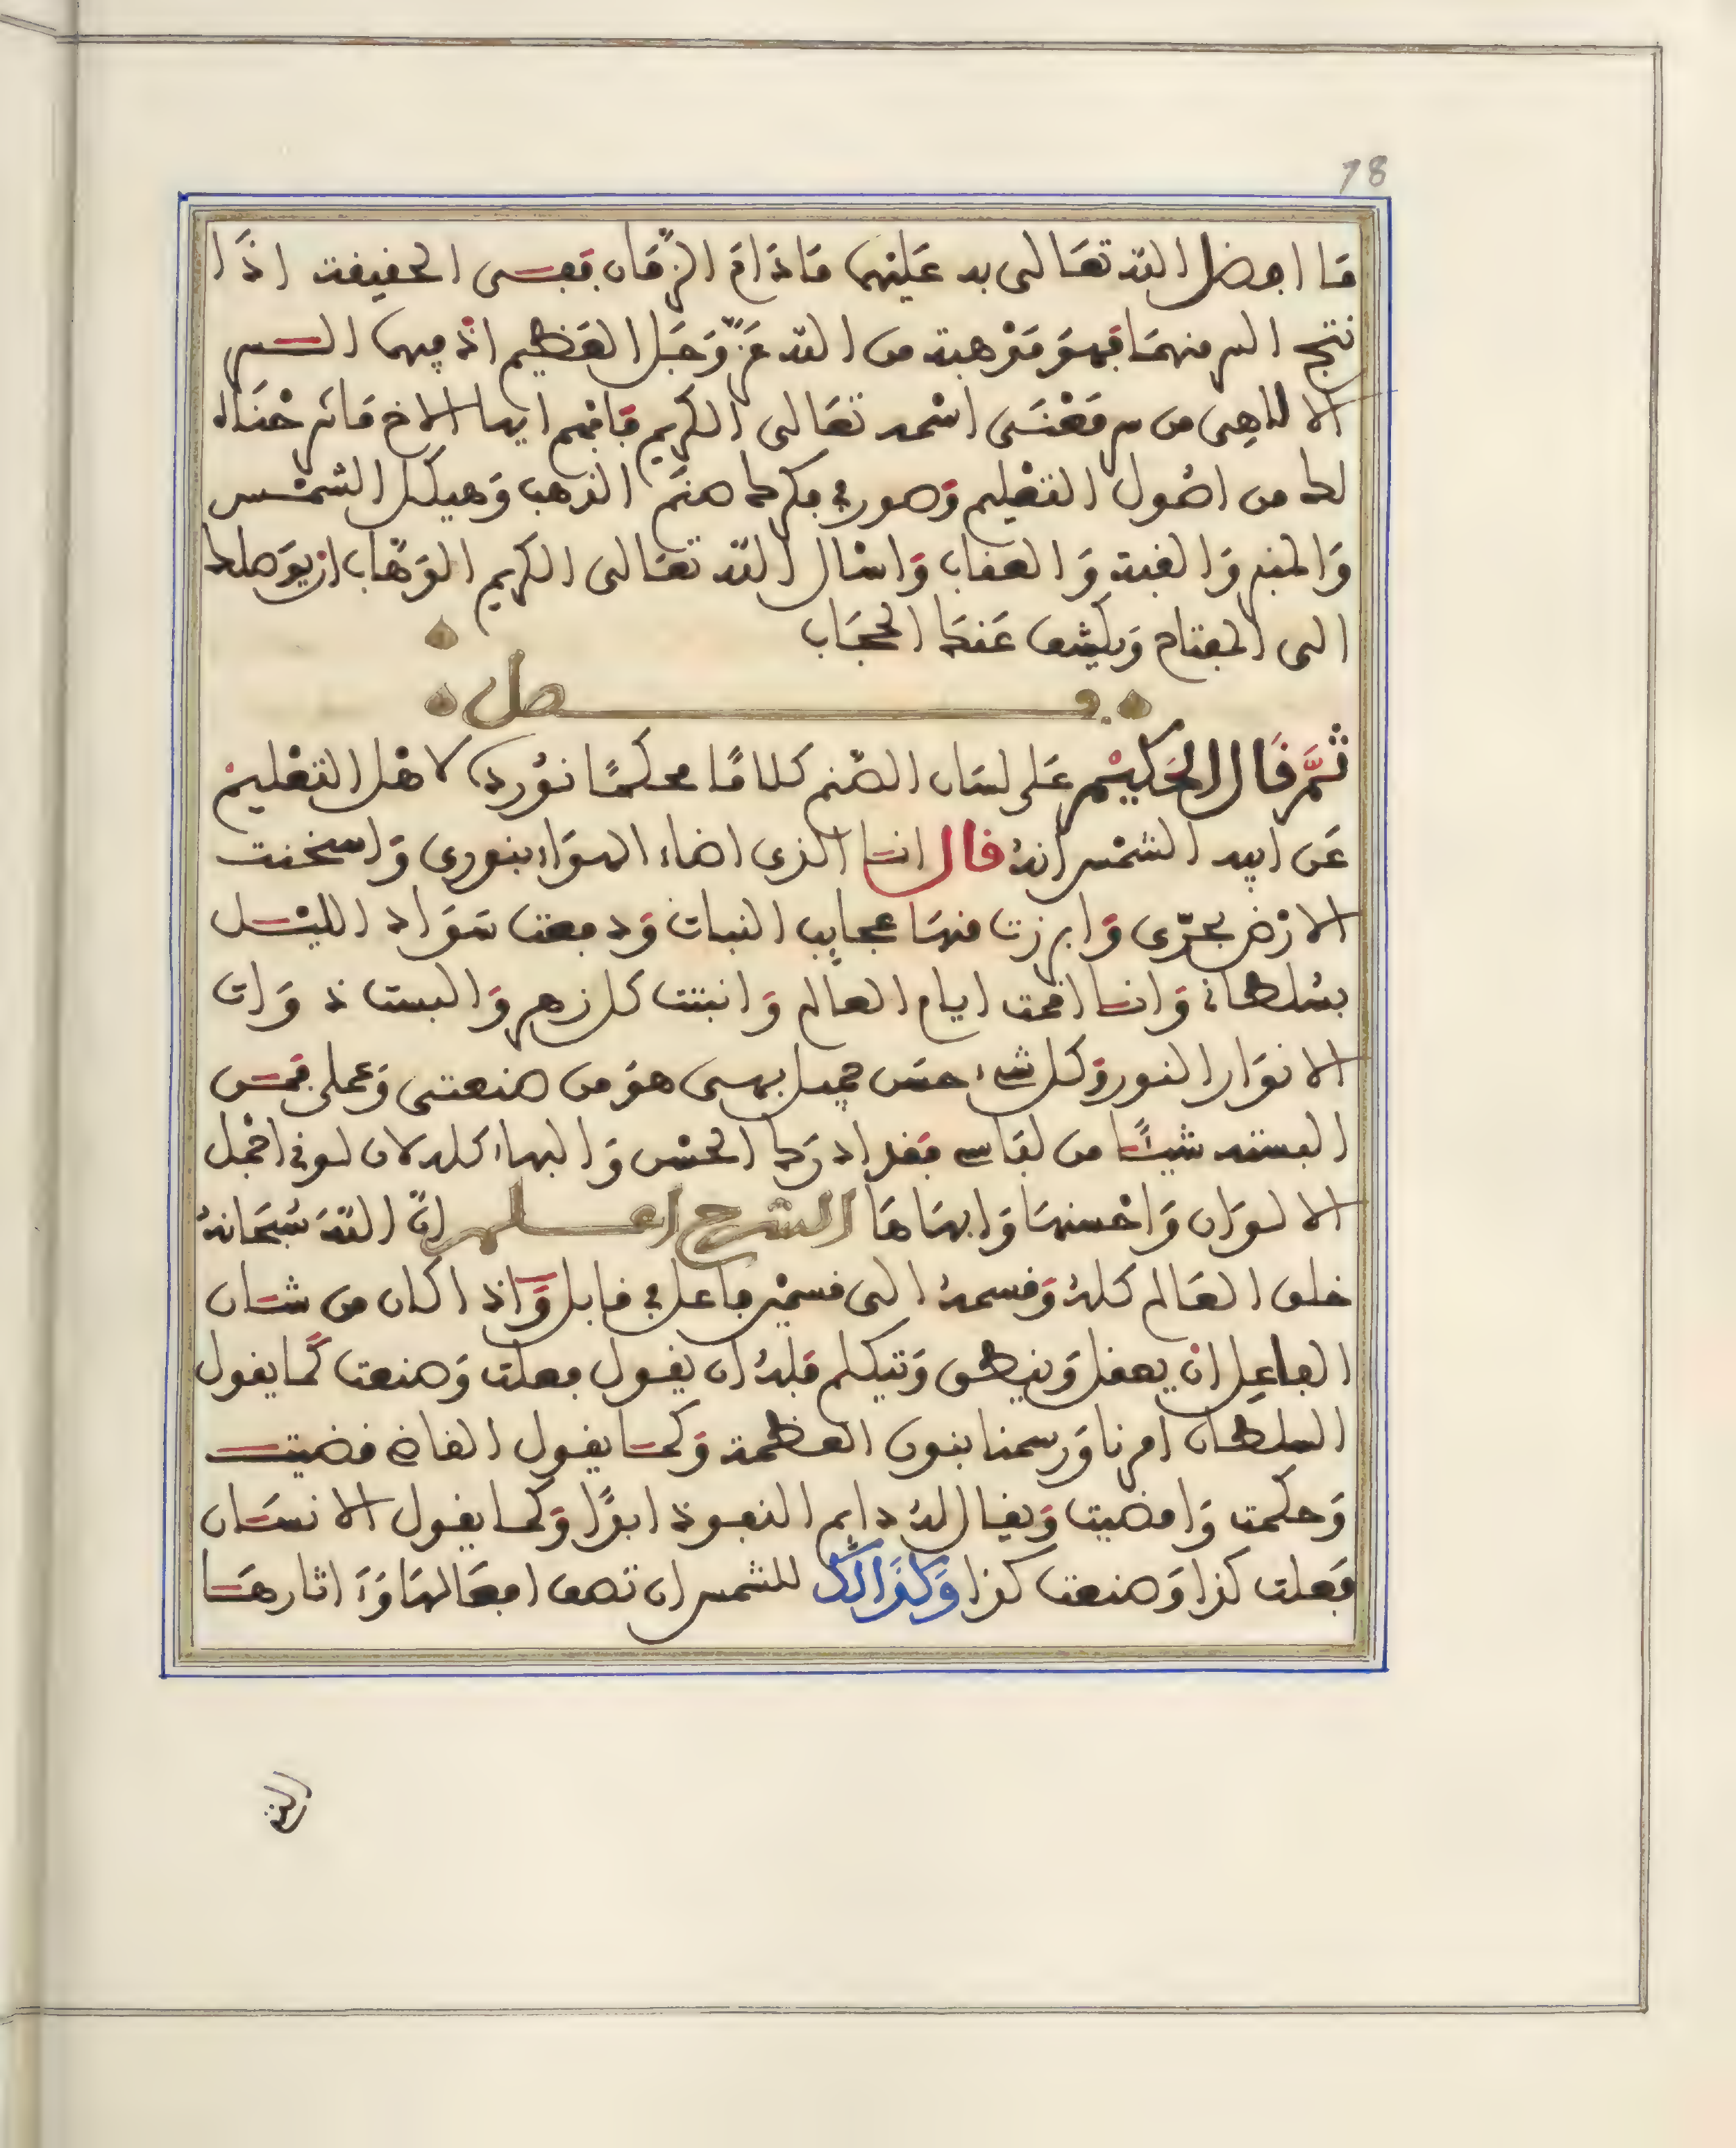 18
ما افضل الله تعالى به عليهما ماذام الزمان ففى الحقيقة اذا
نتج السر منهما فهو موهبة من الله عز وجل العظيم اذ فيهما السر
الالاهى من سر معنى اسمه تعالى الكريم فافهم ايها الاخ ما شرحناه
لك من اصول التعليم وصور فى فكرك صنم الذهب وهيكل الشمس
والمنبر والقبة والعقاب واسال الله تعالى الكريم الوهاب ان يوصلك
الى المفتاح ويكشف عنك الحجاب
فصل
ثم قال الحكيم على لسان الصنم كلاما محكما نورده لاهل التعليم
عن ابيه الشمس انه قال انا الذى اضاء الهواء بنورى واسخنت
الارض بحرى وابرزت منها عجايب النبات ودفعت سواد الليل
بسلطانى وانا اقمت ايام العالم وانبتت كل زهر والبست ذوات
الانوار النور وكل شىء حسن جميل بهى هو من صنعتى وعملى فمن
البسته شيئا من لباسى فقد ادرك الحسن والبهاء كله لان لونى اجمل
الالوان واحسنها وابهاها الشرح اعلم ان الله سبحانه
خلق العالم كله وقسمه الى قسمين فاعل وقابل واذا كان من شان
الفاعل ان يعقل وينطق ويتكلم فله ان يقول فعلت وصنعت كما يقول
السلطان امرنا ورسمنا بنون العظمة وكما يقول القاضى قضيت
وحكمت وامضيت ويقال له دايم النفوذ ابدا وكما يقول الانسان
فعلت كذا وصنعت كذا وكذالك للشمس ان تصف افعالها وءاثارها